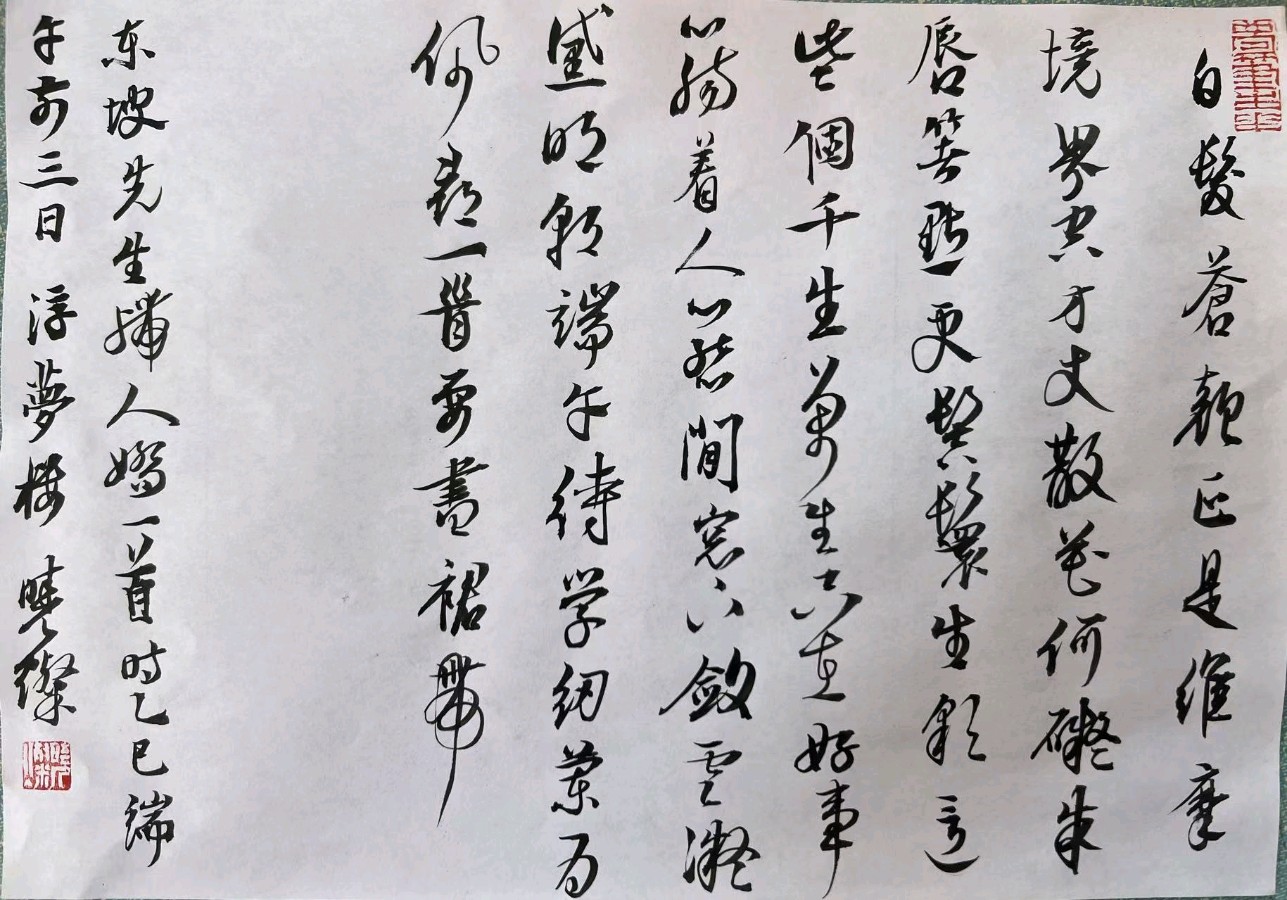 白髮蒼顏正是維摩
境界空方丈散花何礙朱
唇箸點更髻鬟生彩這
些個千生萬生只在好事
心腸着人心態閒窗下斂雲凝
黛明朝端午待学紉蘭为
佩尋一首要書裙帶
东坡先生殢人嬌一首时乙巳端
午前三日浮夢樓曉燦